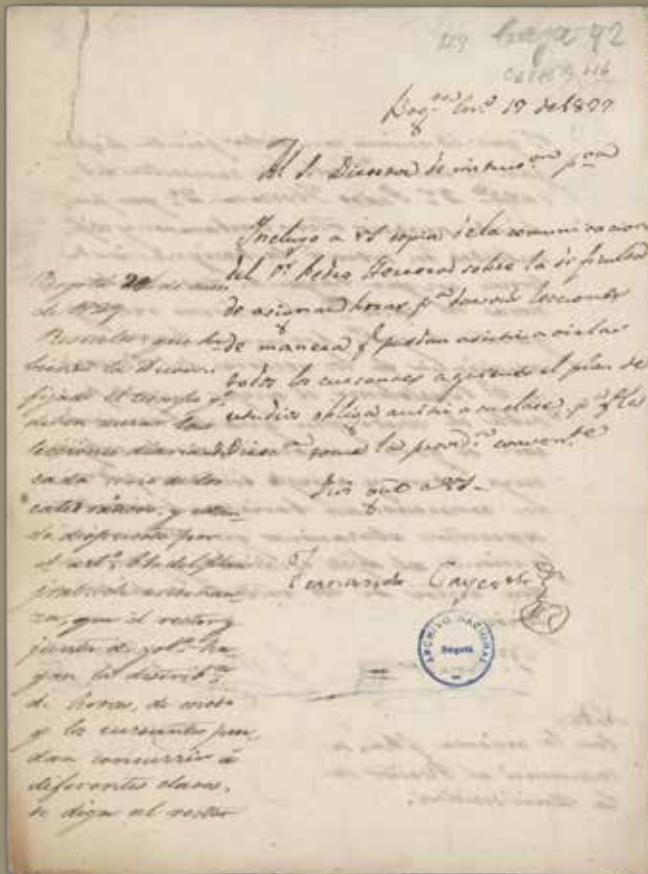 119 Caja 92
Bog.ta En.o 17 de 1829
Al S. Director de instruc.on p.ca
Incluyo a VS copia de la comunicacion
del D.r Pedro Herrera sobre la dificultad
de asignar horas p.a dar sus lecciones
de manera q. puedan asistir a
todos los cursantes a quienes el plan de
estudios obliga
Direc.on tome la provid.a conven.te
Dios gue a VS.
Fernando Caycedo
ARCHIVO NACIONAL
Bogotá
Bogotá 21 de
de 1829
fijado el tiempo q.
deben durar las
lecciones diarias
cada uno de los
catedraticos, y
do dispuesto por
el art.o del plan
za, que el rector y
junta de gob.no ha-
gan la distrib.on
de horas, de modo
q los cursantes pue-
dan concurrir á
diferentes clases,
se diga al rector